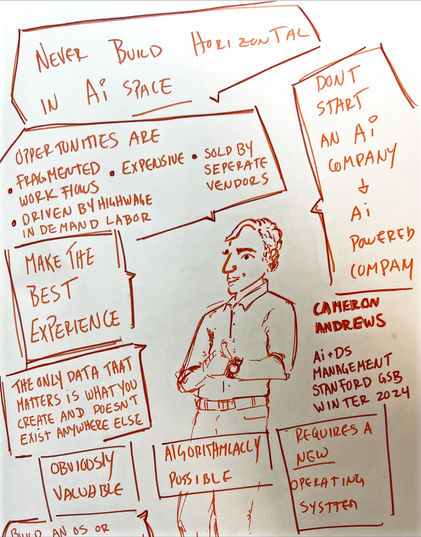 NEVER BUILD HORIZONTAL
IN Ai SPACE
OPPERTUNITIES ARE
• FRAGMENTED
WORK FLOWS
• EXPENSIVE
• SOLD BY
SEPERATE
VENDORS
• DRIVEN BY HIGHWAGE
IN DEMAND LABOR
DONT
START
AN Ai
COMPANY
↓
Ai
POWERED
COMPANY
MAKE THE
BEST
EXPERIENCE
CAMERON
ANDREWS
Ai+DS
MANAGEMENT
STANFORD GSB
WINTER 2024
THE ONLY DATA THAT
MATTERS IS WHAT YOU
CREATE AND DOESN'T
EXIST ANYWHERE ELSE
OBVIOUSLY
VALUABLE
ALGORITHMICALLY
POSSIBLE
REQUIRES A
NEW
OPERATING
SYSTEM
BUILD AN OS OR